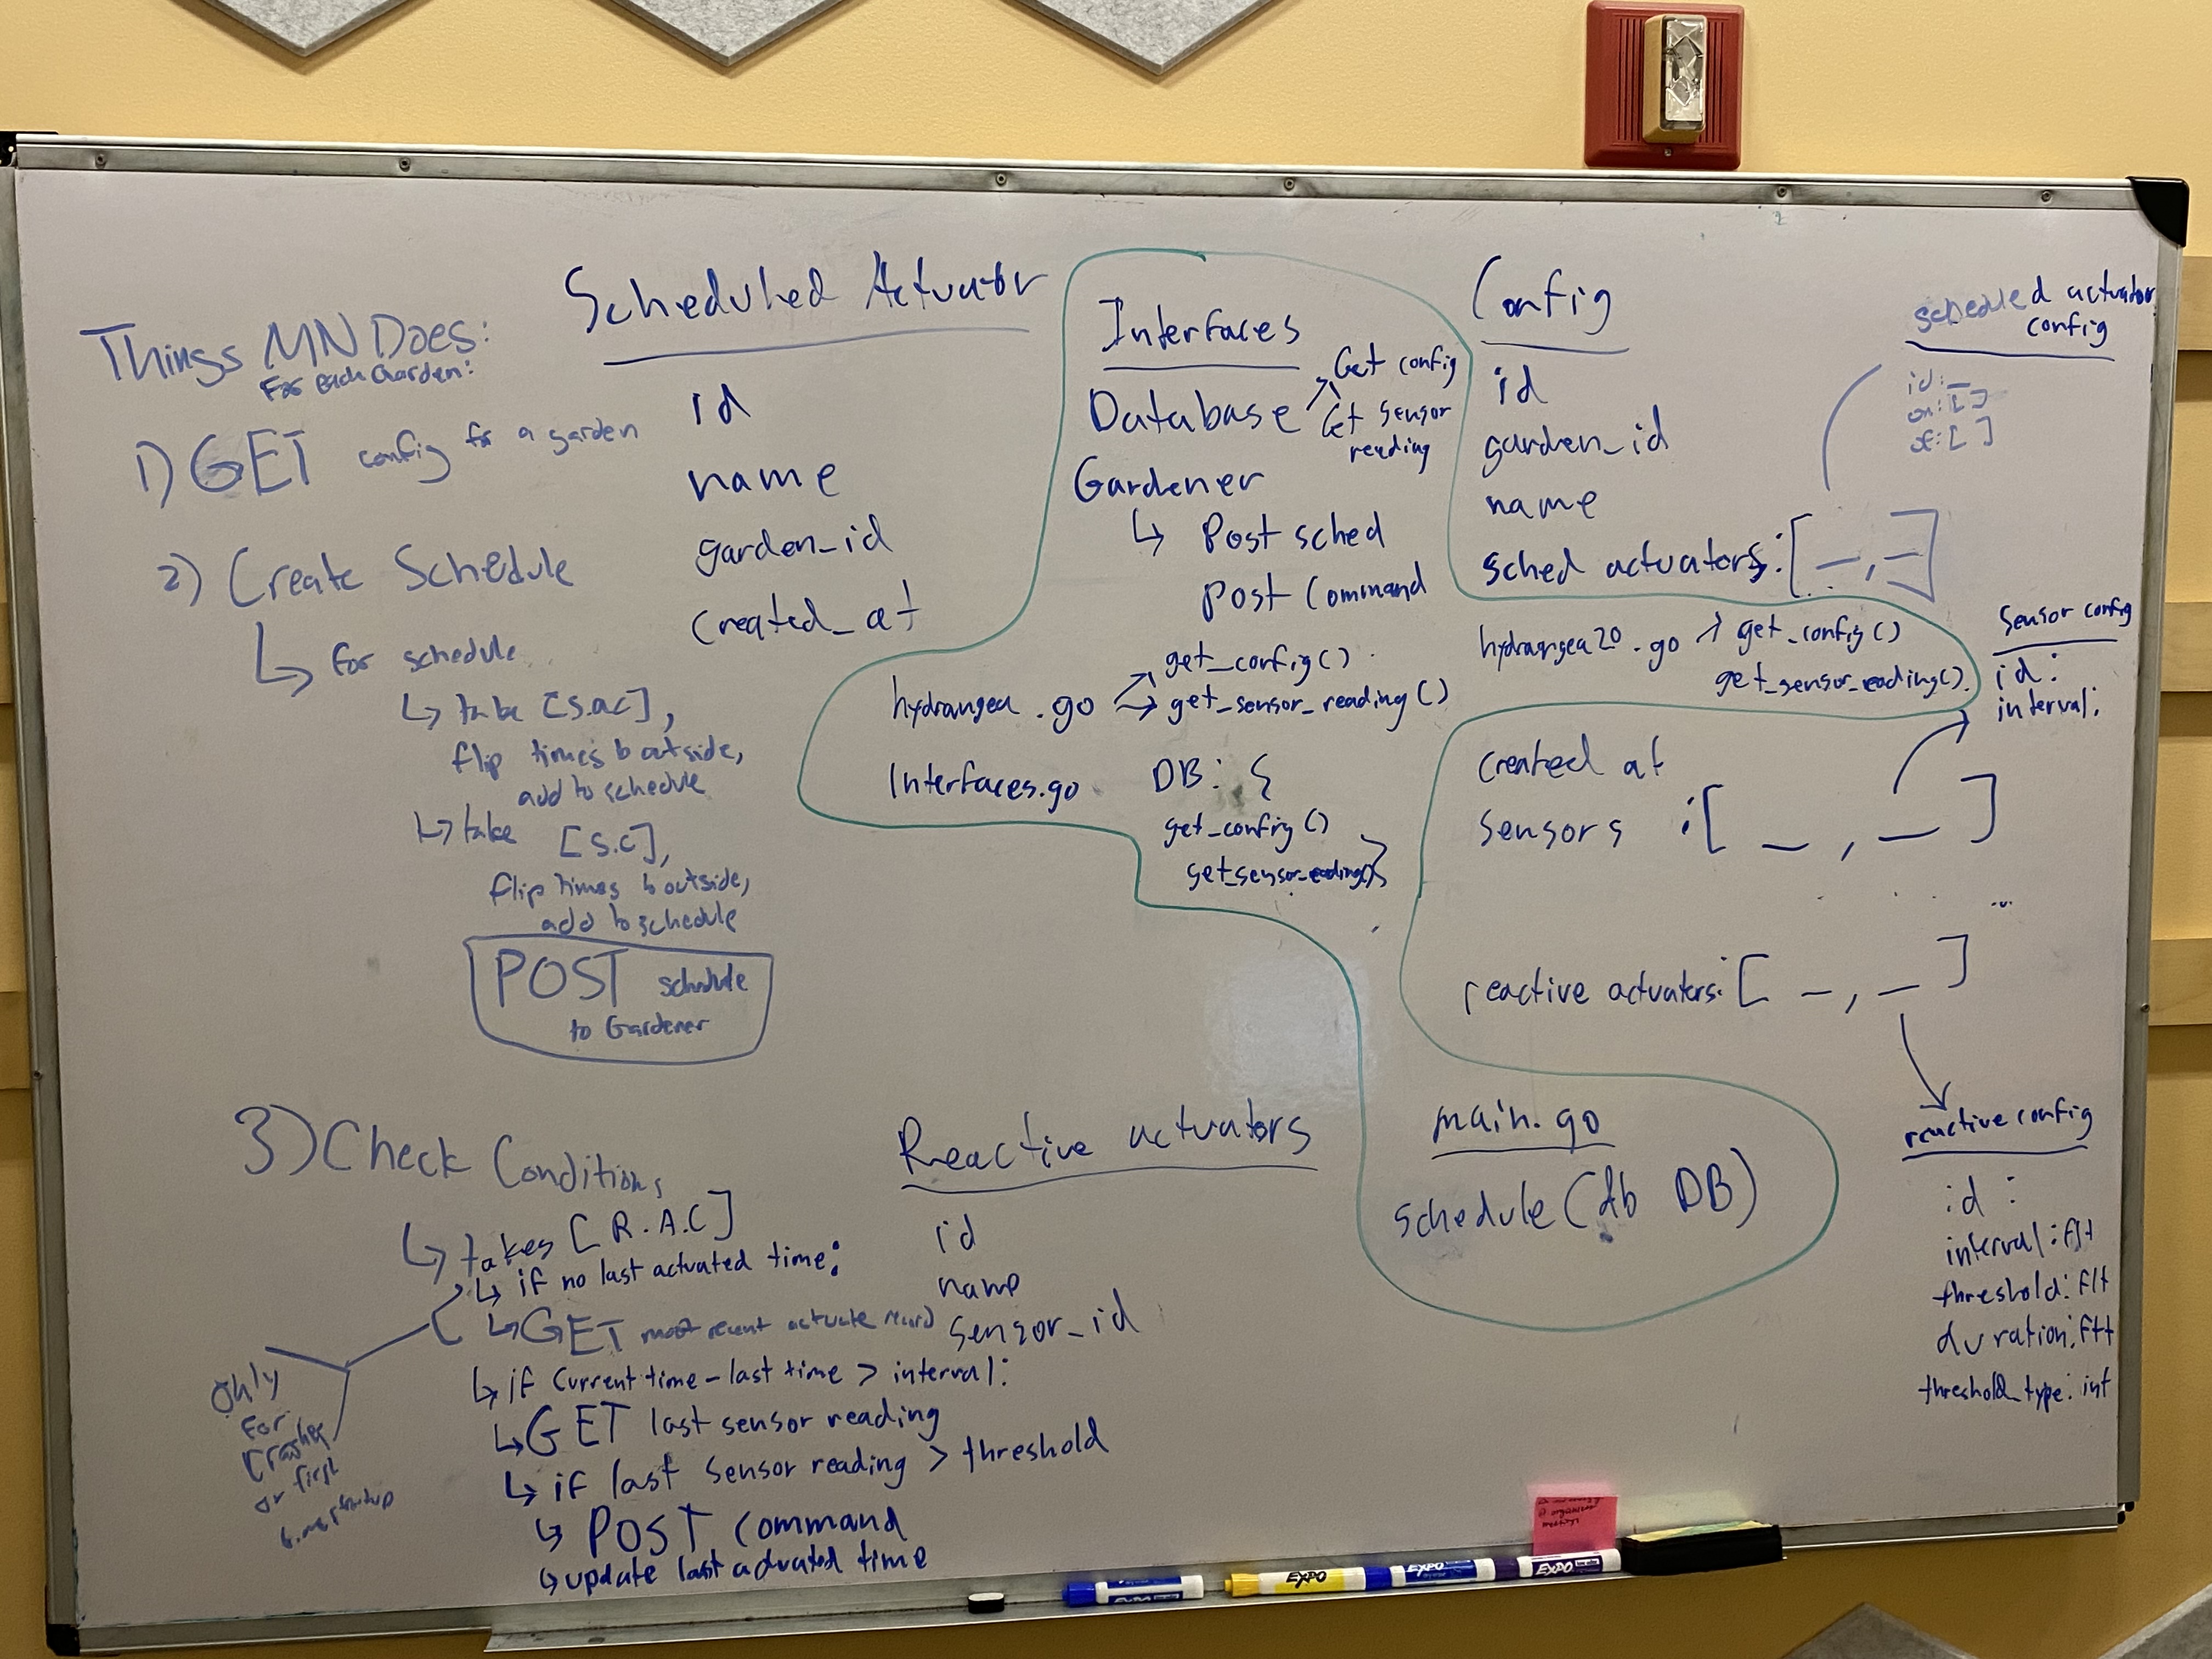 Things MN Does:
For each Garden:
1) GET config for a garden
2) Create Schedule
↳ for schedule
↳ take [S.A.C],
flip times to outside,
add to schedule
↳ take [S.C],
flip times to outside,
add to schedule
POST schedule
to Gardener
3) Check Conditions
↳ takes [R.A.C]
↳ if no last actuated time:
↳ GET most recent actuate record
↳ if current time - last time > interval:
↳ GET last sensor reading
↳ if last sensor reading > threshold
↳ POST command
↳ update last actuated time
Only
For
or first
Scheduled Actuator
id
name
garden_id
created_at
Interfaces
Database
Get config
Get sensor
reading
Gardener
↳ Post sched
Post Command
hydrangea.go
get_config()
get_sensor_reading()
Interfaces.go
DB: {
get_config()
get_sensor_reading()}
Config
id
garden_id
name
sched actuators: [_, _]
hydrangea20.go → get_config()
get_sensor_reading()
created at
sensors : [_, _]
reactive actuators: [_, _]
scheduled actuator
config
id: _
on: [ ]
off: [ ]
Sensor config
id:
interval:
reactive config
id :
interval: flt
threshold: flt
duration: flt
threshold_type: int
Reactive actuators
id
name
sensor_id
main.go
schedule(db DB)
EXPO
EXPO
EXPO
EXPO